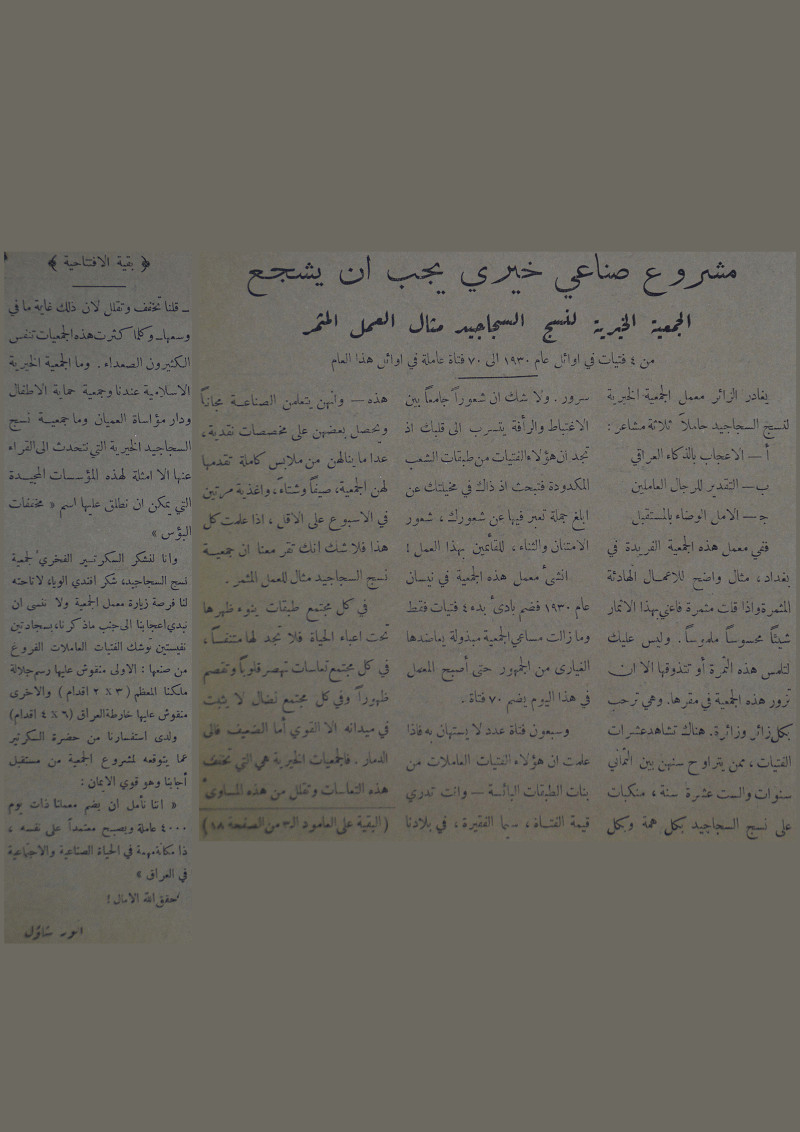 مشروع صناعي خيري يجب ان يشجع
الجمعية الخيرية لنسج السجاجيد مثال العمل المثمر
من ٤ فتيات في اوائل عام ١٩٣٠ الى ٧٠ فتاة عاملة في اوائل هذا العام
يغادر الزائر معمل الجمعية الخيرية
لنسج السجاجيد حاملاً ثلاثة مشاعر :
أ — الاعجاب بالذكاء العراقي
ب — التقدير للرجال العاملين
ج — الامل الوضاء بالمستقبل
ففي معمل هذه الجمعية الفريدة في
بغداد ، مثال واضح للاعمال الهادئة
المثمرة واذا قلت مثمرة فاعني بهذا الاثمار
شيئاً محسوساً ملموساً . وليس عليك
لتلمس هذه الثمرة أو تتذوقها الا ان
تزور هذه الجمعية في مقرها. وهي ترحب
بكل زائر وزائرة. هناك تشاهد عشرات
الفتيات ، ممن يتراوح سنهن بين الثماني
سنوات والست عشرة سنة ، منكبات
على نسج السجاجيد بكل همة وبكل
سرور . ولا شك ان شعوراً جامعاً بين
الاغتباط والرأفة يتسرب الى قلبك اذ
تجد ان هؤلاء الفتيات من طبقات الشعب
المكدودة فتبحث اذ ذاك في مخيلتك عن
ابلغ جملة تعبر فيها عن شعورك ، شعور
الامتنان والثناء ، للقائمين بهذا العمل !
انشئ معمل هذه الجمعية في نيسان
عام ١٩٣٠ فضم بادئ بدء ٤ فتيات فقط
وما زالت مساعي الجمعية مبذولة يعاضدها
الغيارى من الجمهور حتى أصبح المعمل
في هذا اليوم يضم ٧٠ فتاة .
وسبعون فتاة عدد لا يستهان به فاذا
علمت ان هؤلاء الفتيات العاملات من
بنات الطبقات البائسة — وانت تدري
قيمة الفتاة ، سيما الفقيرة ، في بلادنا
هذه — وانهن يتعلمن الصناعة مجاناً
وتحصل بعضهن على مخصصات نقدية ،
عدا ما ينالهن من ملابس كاملة تقدمها
لهن الجمعية، صيفاً وشتاءً، واغذية مرتين
في الاسبوع على الاقل ، اذا علمت كل
هذا فلا شك انك تقر معنا ان جمعية
نسج السجاجيد مثال للعمل المثمر .
في كل مجتمع طبقات ينوء ظهرها
تحت اعباء الحياة فلا تجد لها متنفساً ،
في كل مجتمع تعاسات تهصر قلوباً وتقصم
ظهوراً وفي كل مجتمع نضال لا يثبت
في ميدانه الا القوي أما الضعيف فالى
الدمار . فالجمعيات الخيرية هي التي تخفف
هذه التعاسات وتقلل من هذه المساوئ
( البقية على العامود الـ٣ من الصفحة ١٨ )
﴿ بقية الافتتاحية ﴾
ــ قلنا تخفف وتقلل لان ذلك غاية ما في
وسعها ــ وكلما كثرت هذه الجمعيات تنفس
الكثيرون الصعداء . وما الجمعية الخيرية
الاسلامية عندنا وجمعية حماية الاطفال
ودار مؤاساة العميان وما جمعية نسج
السجاجيد الخيرية التي نتحدث الى القراء
عنها الا امثلة لهذه المؤسسات المجيدة
التي يمكن ان نطلق عليها اسم « مخففات
البؤس »
وانا لنشكر السكرتير الفخري لجمعية
نسج السجاجيد، شكر افندي الوياء لاتاحته
لنا فرصة زيارة معمل الجمعية ولا ننسى ان
نبدي اعجابنا الى جنب ما ذكرناه بسجادتين
نفيستين توشك الفتيات العاملات الفروغ
من صنعها : الاولى منقوش عليها رسم جلالة
ملكنا المعظم ( ٣ × ٢ اقدام ) والاخرى
منقوش عليها خارطة العراق (٦ × ٤ اقدام)
ولدى استفسارنا من حضرة السكرتير
عما يتوقعه لمشروع الجمعية من مستقبل
أجابنا وهو قوي الايمان :
« اننا نأمل ان يضم معملنا ذات يوم
٤٠٠٠ عاملة ويصبح معتمداً على نفسه ،
ذا مكانة مهمة في الحياة الصناعية والاجتماعية
في العراق »
حقق الله الآمال !
انور شاؤل